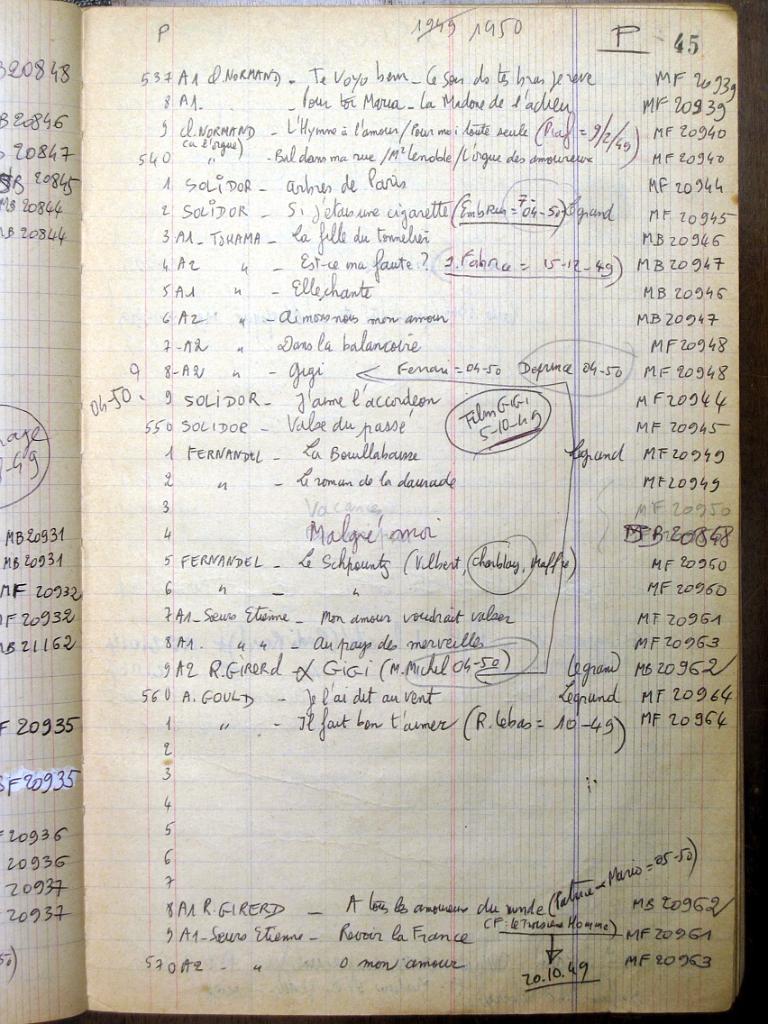 P 1949 1950 P 45
537 A1 cl. NORMAND - Te voyo bem - Ce soir ds tes bras je rêve MF 20939
8 A1. - Pour toi Maria - La Madone de l'adieu MF 20939
9 cl. NORMAND - L'Hymne à l'amour / Pour moi toute seule (Piaf = 9/2/49) MF 20940
(à l'orgue)
540 " - Bal dans ma rue / Mr Lenoble / L'orgue des amoureux MF 20940
1 SOLIDOR - arbres de Paris MF 20944
2 SOLIDOR - Si j'étais une cigarette (Embrun = 7-04-50) Legrand MF 20945
3 A1 - TOHAMA - La fille du tonnelier MB 20946
4 A2 " - Est-ce ma faute ? J. Fabrice = 15-12-49) MB 20947
5 A1 " - Elle chante MB 20946
6 A2 " - Aimons nous mon amour MB 20947
7 - A2 " - Dans la balancoire MF 20948
9 8 - A2 " - Gigi Ferrari = 04-50 Deprince 04-50 MF 20948
04-50. 9 SOLIDOR - J'aime l'accordéon MF 20944
Film GIGI
5-10-49
550 SOLIDOR - Valse du passé MF 20945
1 FERNANDEL - La Bouillabaisse Legrand MF 20949
2 " - Le roman de la daurade MF 20949
3 Vacances MF 20950
4 Malgré moi MB 20848
5 FERNANDEL - Le Schpountz (Vilbert, Charblay, Maffre) MF 20960
6 " " MF 20960
7 A1 - Sœurs Etienne - Mon amour voudrait valser MF 20961
8 A1. " " - Au pays des merveilles MF 20963
9 A2 R. GIRERD - GIGI (M. Michel 04-50) Legrand MB 20962
560 A. GOULD - Je l'ai dit au vent Legrand MF 20964
1 " - Il fait bon t'aimer (R. Lebas = 10-49) MF 20964
2
3
4
5
6
7
8 A1 R. GIRERD - A tous les amoureux du monde (Patrice & Mario = 05-50) MB 20962
9 A1 - Sœurs Etienne - Revoir la France (CF: Le Troisième Homme) MF 20961
570 A2 - " O mon amour MF 20963
20.10.49
B20848
B 20846
20847
B 20845
MB 20844
MB 20844
-49
MB 20931
MB 20931
MF 20932
MF 20932
MB 21162
F 20935
F 20935
20936
20936
20937
20937